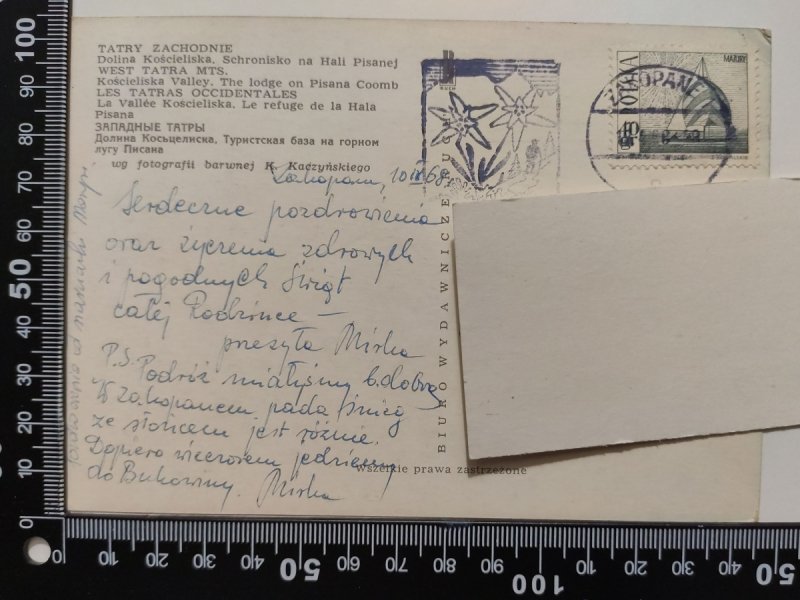 TATRY ZACHODNIE
Dolina Kościeliska, Schronisko na Hali Pisanej
WEST TATRA MTS.
Kościeliska Valley. The lodge on Pisana Coomb
LES TATRAS OCCIDENTALES
La Vallée Kościeliska. Le refuge de la Hala
Pisana
ЗАПАДНЫЕ ТАТРЫ
Долина Косьцелиска, Туристская база на горном
лугу Писана
wg fotografii barwnej K. Kaczyńskiego
Zakopane, 10
Serdeczne pozdrowienia
oraz życzenia zdrowych
i pogodnych Świąt
całej Rodzince —
przesyła Mirka
P.S. Podróż miałyśmy b. dobrą
W Zakopanem pada śnieg
ze słońcem jest różnie.
Dopiero wieczorem jedziemy
do Bukowiny. Mirka
Pozdrowienia od
BIURO WYDAWNICZE RUCH
Wszelkie prawa zastrzeżone
POLSKA
MAZURY
ZAKOPANE
100
90
80
70
60
50
40
30
20
10
0
0
10
20
30
40
50
60
70
80
90
100
10
20
30
40
50